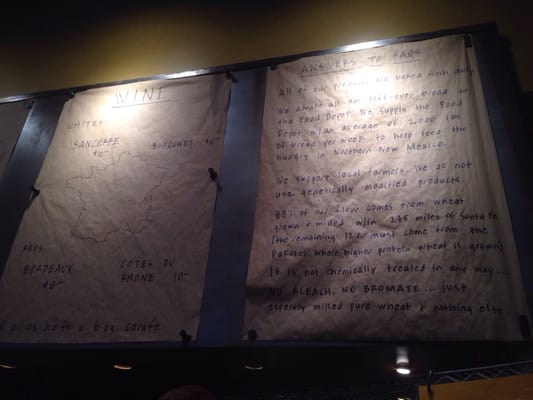 WINE
WHITES:
SANCERRE BURGUNDY
REDS
BORDEAUX
COTES DU
RHONE 10-
all prices are for a 6 oz. carafe
ANSWERS TO FAQS
All of our products are baked fresh daily
We donate all our left-over bread to
the Food Depot. We supply the Food
Depot w/an average of 2,000 lbs.
of bread per week to help feed the
hungry in Northern New Mexico.
We support local farmers. We do not
use genetically modified products.
88% of our flour comes from wheat
grown & milled w/in 275 miles of Santa Fe
(the remaining 12% must come from the
Dakotas where higher protein wheat is grown)
It is not chemically treated in any way...
NO BLEACH, NO BROMATE... just
expertly milled pure wheat & nothing else.